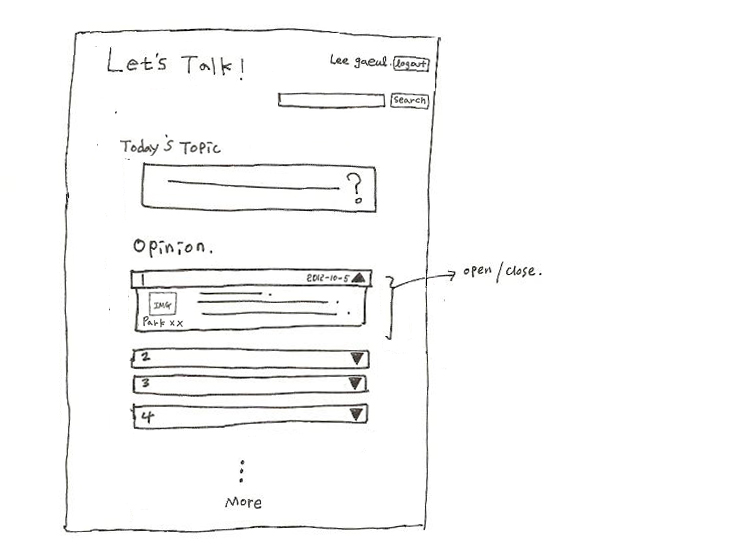 Let's Talk!
Lee gaeul. logout
search
Today's Topic
?
Opinion.
1 2012-10-5
IMG
Park xx
open/close.
2
3
4
More